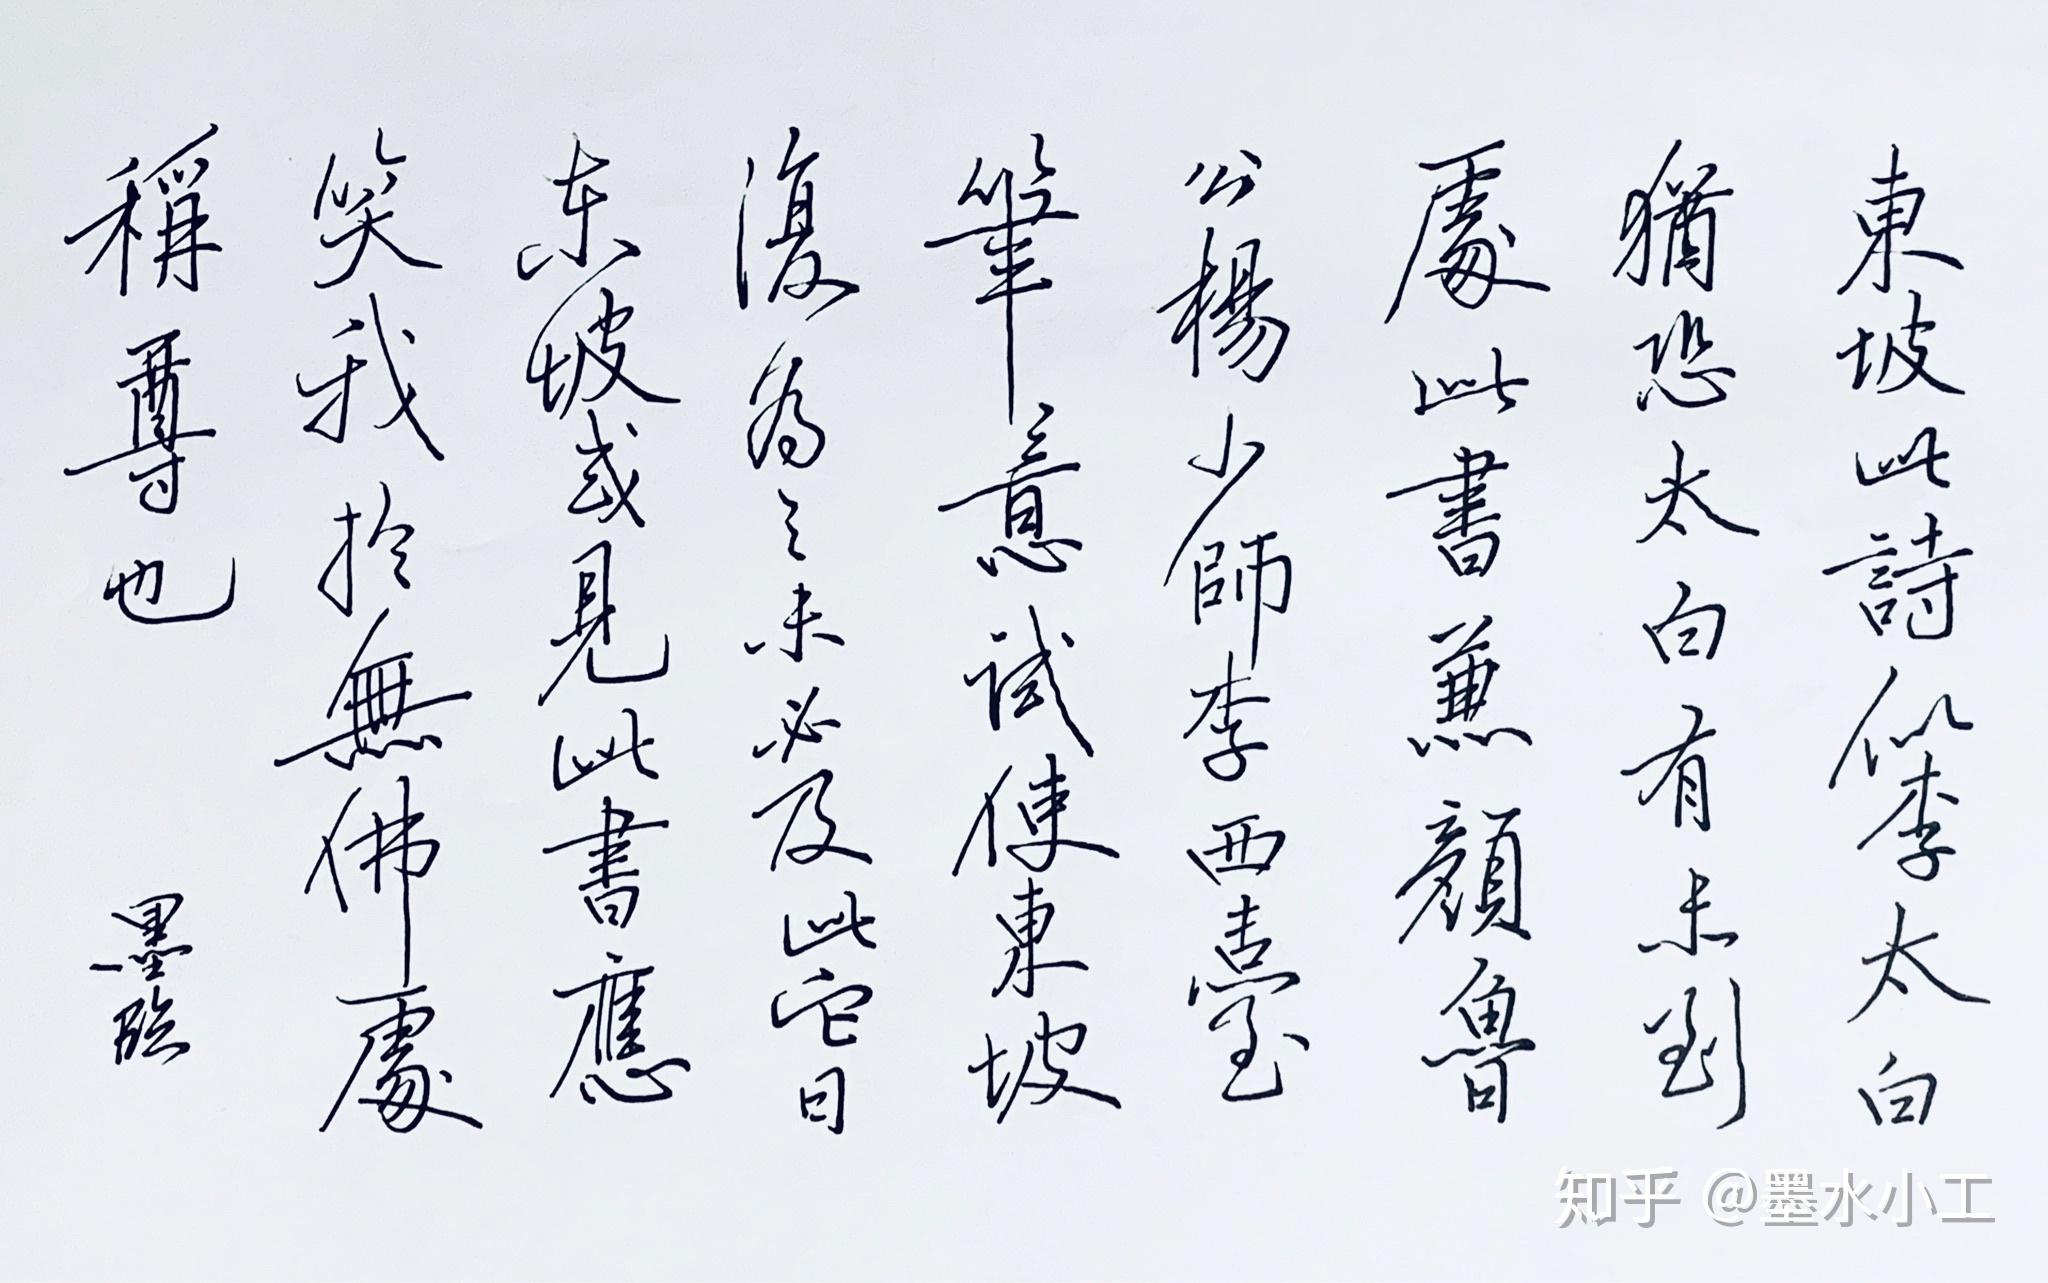 東坡此詩似李太白
猶恐太白有未到
處此書兼顔魯
公楊少師李西臺
筆意試使東坡
復為之未必及此它日
东坡或見此書應
笑我於無佛處
稱尊也
墨臨
知乎 @墨水小工